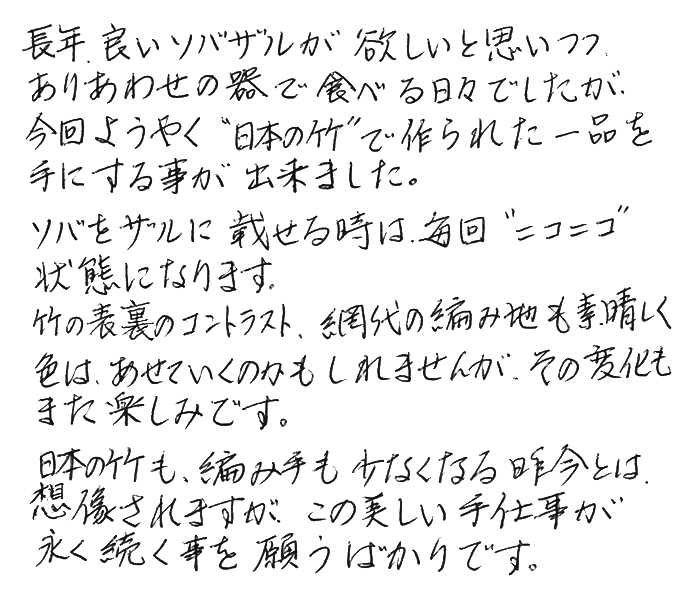 長年、良いソバザルが欲しいと思いつつ、
ありあわせの器で食べる日々でしたが、
今回ようやく“日本の竹”で作られた一品を
手にする事が出来ました。
ソバをザルに載せる時は、毎回“ニコニコ”
状態になります。
竹の表裏のコントラスト、網代の編み地も素晴しく
色は、あせていくのかもしれませんが、その変化も
また楽しみです。
日本の竹も、編み手も少なくなる昨今とは、
想像されますが、この美しい手仕事が
永く続く事を願うばかりです。